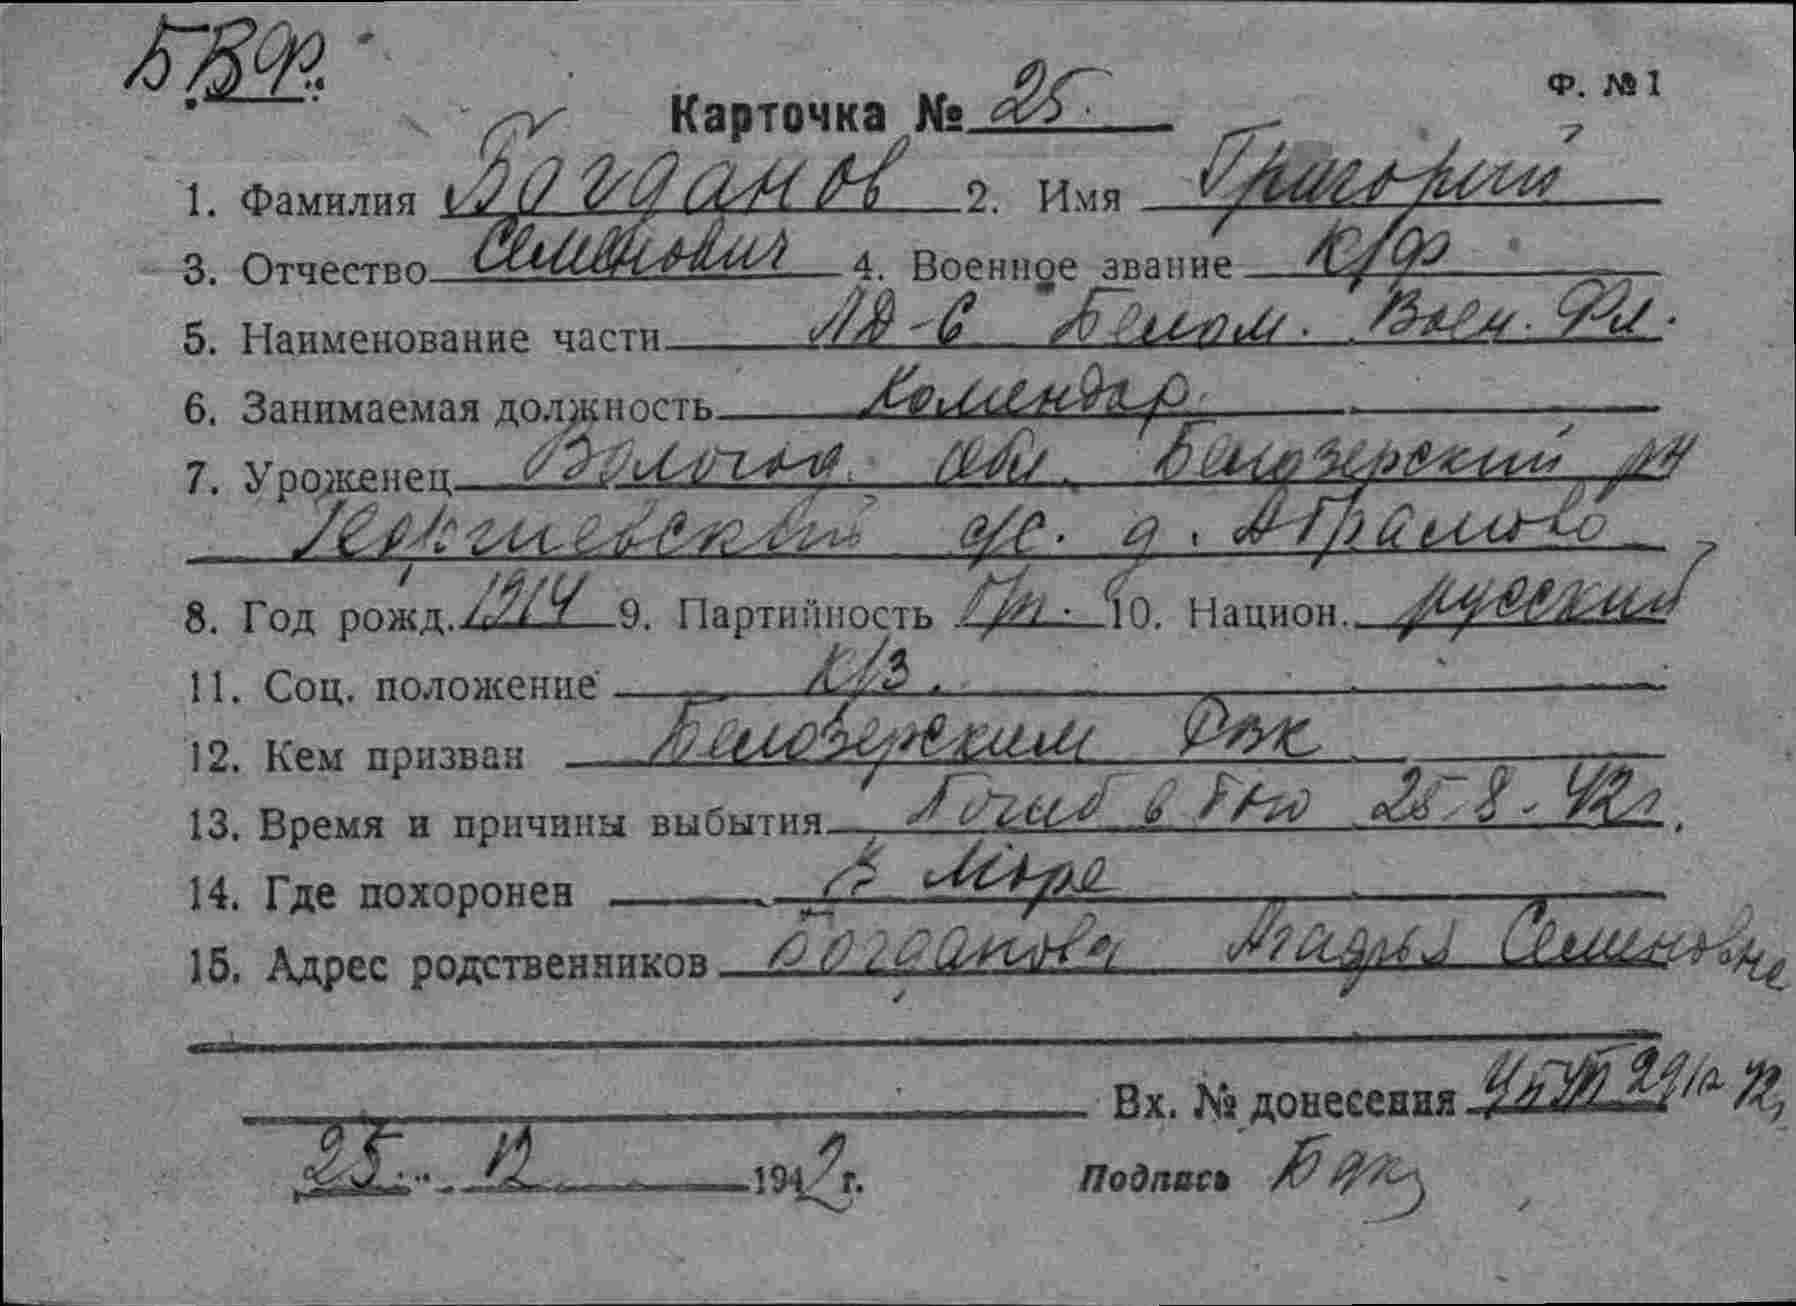 БВФ.
Карточка № 25.
Ф. № 1
1. Фамилия Богданов 2. Имя Григорий
3. Отчество Семенович 4. Военное звание к/ф
5. Наименование части ЛД-6 Белом. Воен. Фл.
6. Занимаемая должность Комендор
7. Уроженец Вологод. обл. Белозерский рн
с/с. д. Абрамово
8. Год рожд. 1914 9. Партийность б/п. 10. Национ. русский
11. Соц. положение к/з.
12. Кем призван Белозерским РВК
13. Время и причины выбытия Погиб в бою 25.8.42г.
14. Где похоронен В море
15. Адрес родственников Богданова Семеновне
Вх. № донесения
25. 12 1942 г. Подпись